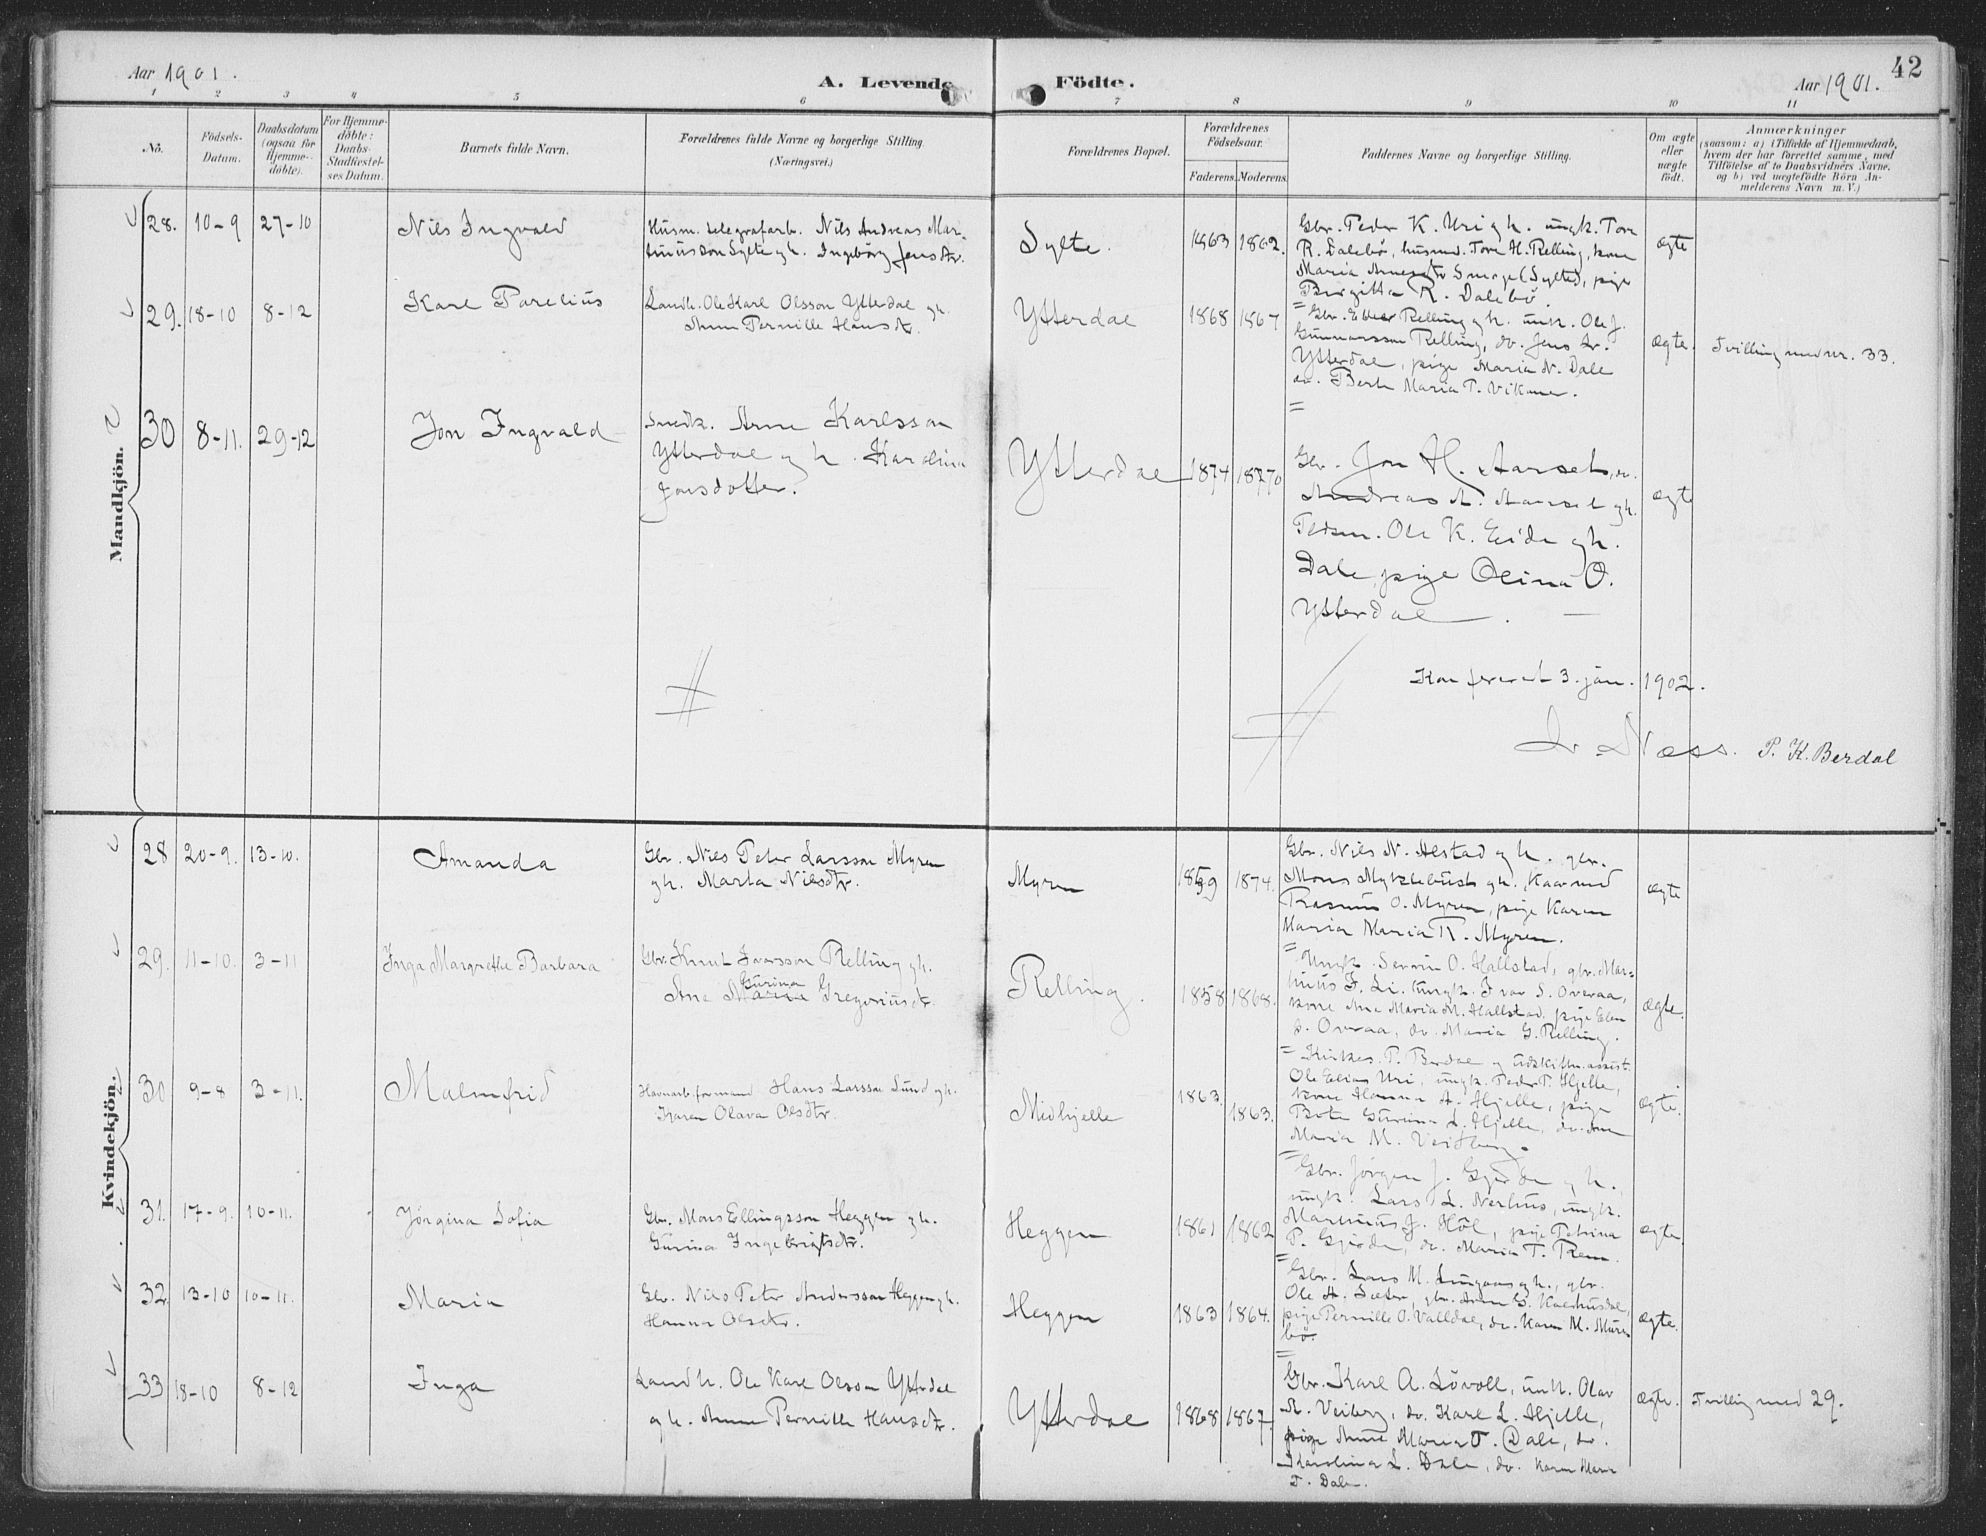 42
Aar 1901.
A. Levende Födte.
Aar 1901.
1 2 3 4 5 6 7 8 9 10 11
No.
Födsels-Datum.
Daabsdatum (ogsaa for Hjemme-döbte).
For Hjemme-döbte: Daabs-Stadfæstel-ses Datum.
Barnets fulde Navn.
Forældrenes fulde Navne og borgerlige Stilling.
(Næringsvei.)
Forældrenes Bopæl.
Forældrenes Födselsaar.
Faderens. Moderens.
Faddernes Navne og borgerlige Stilling.
Om ægte eller uægte födt.
Anmærkninger
(saasom: a) i Tilfælde af Hjemmedaab,
hvem der har forrettet samme, med
Tilföielse af to Daabsvidners Navne,
og b) ved uægtefödte Börn An-
melderens Navn m. V.)
Mandkjön.
28. 10-9 27-10 Nils Ingvald
Husm. telegrafarb. Nils Andreas Mar-
tinusson Sylte gh. Ingeborg Jensdtr.
Sylte. 1863 1862.
Gbr. Peder K. Uri gh. ungk. Tore
R. Dalebø, husmd. Tore H. Relling, kone
Maria Arnesdtr Smoge (Sylte), pige
Birgitta R. Dalebø.
ægte
29. 18-10 8-12 Karl Parelius
Landh. Ole Karl Olsson Ytterdal gh.
Anne Pernille Hansdtr.
Ytterdal 1868 1867
Gbr. Relling gh. unk. Ole J.
Gunnarsson Relling, do. Jens
Ytterdal, pige Maria N. Dale
do. Berte Maria P. Vikane.
ægte. Tvilling med nr. 33.
30 8-11. 29-12 Jon Ingvald
Snedk. Arne Karlsson
Ytterdal gh. Karolina
Jonsdotter.
Ytterdal 1874 1870
Gbr. Jon H. Aarset, do.
Andreas A. Aarset gh.
Pedsm. Ole K. Eide gh.
Dale, pige Olina O.
Ytterdal.
ægte
Konfereret 3. jan. 1902.
Næss. P. K. Berdal
Kvindekjön.
28 20-9. 13-10. Amanda
Gbr. Nils Peter Larsson Myren
gh. Marta Nilsdtr.
Myren 1859 1874.
Gbr. Nils N. Alstad gh. gbr.
Mons Myklebust gh. Kaarmd
Rasmus O. Myren, pige Karen
Maria Maria K. Myren.
ægte
29. 11-10. 3-11 Inga Margrethe Barbara
Gbr. Knut Ivarsson Relling gh.
Ane Gurina Gregoriusdtr.
Relling. 1858 1868.
Ungk. Severin O. Hallstad, gbr. Mar-
tinus J. Li. ungk. Ivar S. Overaa,
kone Ane Maria M. Hallstad, pige Elen
S. Overaa, do. Maria G. Relling.
ægte.
30 9-8 3-11. Malmfrid
Havnearb.formand Hans Larsson Lund gh.
Karen Olava Olsdtr.
Midhjelle 1863. 1863.
Kirkes. P. Berdal og udskiftn.assist.
Ole Elias Uri, ungk. Peder P. Hjelle,
kone Hanna A. Hjelle, pige
Gurina L. Hjelle, do. Ane
Maria M. Veiberg.
ægte.
31. 17-9. 10-11. Jørgina Sofia
Gbr. Mons Ellingsson Heggen gh.
Gurina Ingebrigtsdtr.
Heggen 1861 1862
Gbr. Jørgen J. Gjerde gh.,
ungk. Lars L. Nerhus, ungk.
Martinus J. Høl, pige Petrina
P. Gjerde, do. Maria T. Rem.
ægte.
32. 13-10 10-11. Maria
Gbr. Nils Peter Andersson Heggen gh.
Hanna Olsdtr.
Heggen 1863 1864.
Gbr. Lars M. Lingaas gh., gbr.
Ole A. Sæter, gbr. Arne G. Kaldhusdal,
pige Pernille O. Valldal, do. Karen M. Mure-
bø.
ægte.
33 18-10 8-12 Inga
Landh. Ole Karl Olsson Ytterdal
gh. Anne Pernille Hansdtr.
Ytterdal 1868 1867.
Gbr. Karl A. Løvoll, unk. Olav
A. Veiberg, do. Karl L. Hjelle,
pige Anne Maria T. Dale, do.
Karolina L. Dale, do. Karen Marie
T. Dale.
ægte. Tvilling med 29.